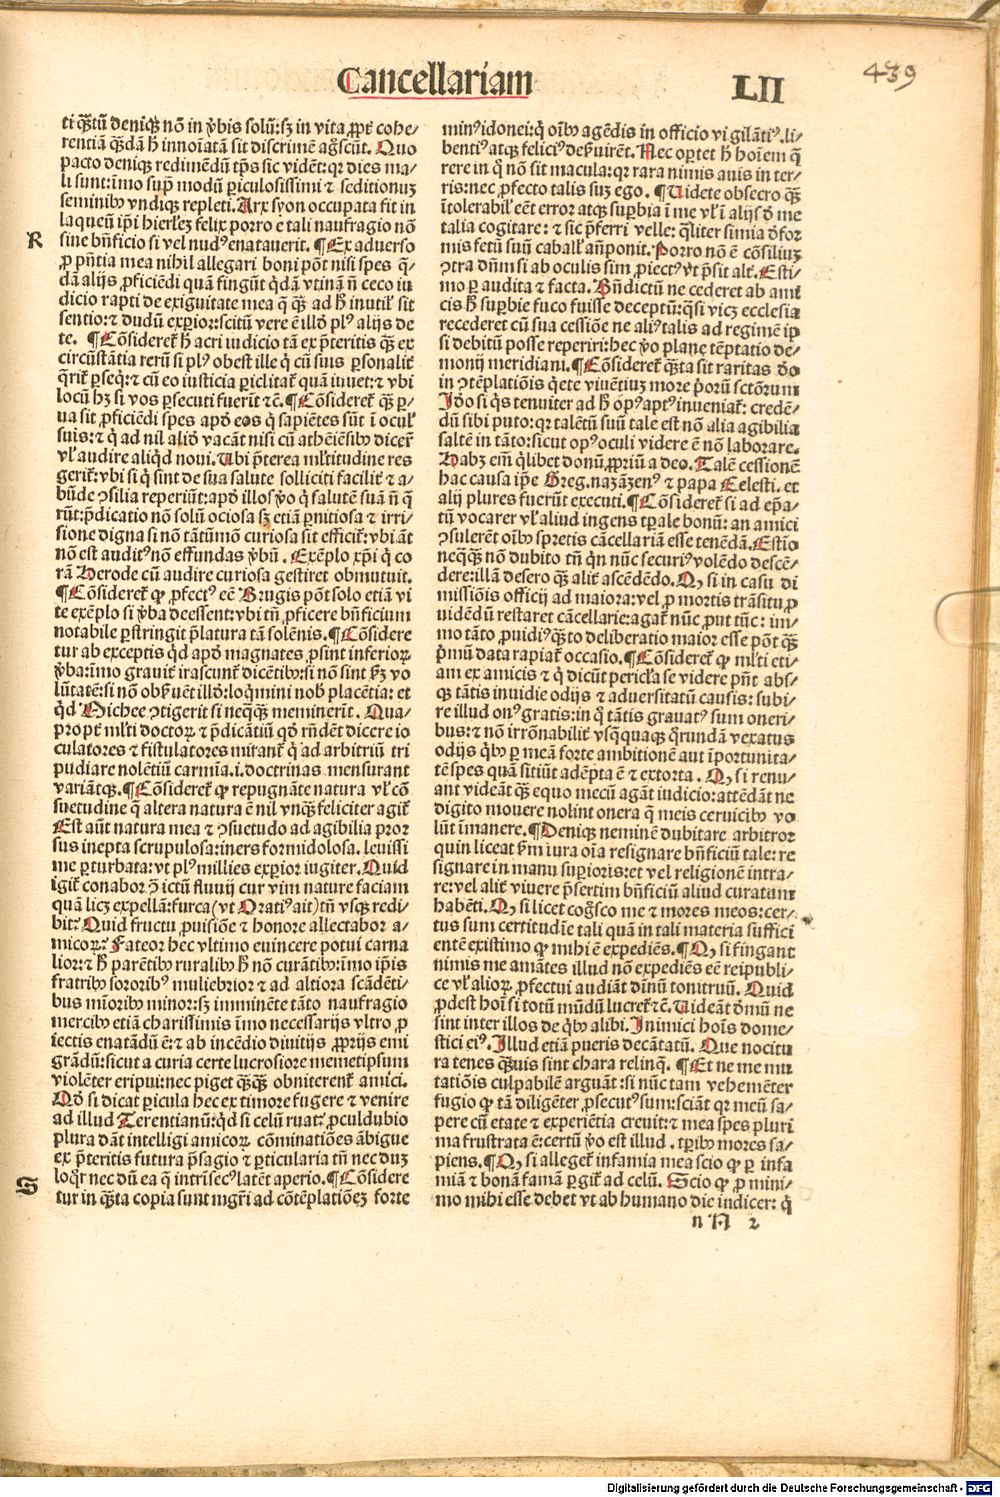 Cancellariam
LII
439
ti q̄ꝫtū deniqꝫ nō in v̄bis solū: sꝫ in vita ꝓpt̄ cohe/
rentiā q̄ꝫdā h̄ innoīatā sit discrimē aḡscūt. Quo
pacto deniqꝫ redimēdū tp̄s sic vidēt: qꝛ dies ma/
li sunt: īmo sup̄ modū ꝑiculosissimi ⁊ seditionuꝫ
seminibꝰ vndiqꝫ repleti. Arx syon occupata fit in
laqueū ip̄i hierl̄eꝫ felix porro e tali naufragio nō
R
sine bn̄ficio si vel nudꝰ enatauerit. ¶ Ex aduerso
ꝓ pn̄tia mea nihil allegari boni pōt nisi spes q̄/
dā alijs ꝓficiēdi quā fingūt q̄dā vtinā n̄ ceco iu
dicio rapti de exiguitate mea q̄ qꝫ ad h̄ inutil̄ sit
sentio: ⁊ dudū exꝑior: scitū vere ē illd̄ plꝰ alijs de
te. ¶ Cōsideret̄ h̄ acri iudicio tā ex p̄teritis qꝫ ex
circūstātia rerū si plꝰ obest ille q̄ cū suis ꝑsonalit̄
q̄rit̄ ꝑseq̄: ⁊ cū eo iusticia ꝑiclitat̄ quā iuuet: ⁊ vbi
locū hꝫ si vos ꝑsecuti fuerīt ⁊c̄. ¶ Cōsideret̄ qꝫ ꝑ/
ua sit ꝓficiēdi spes apd̄ eos q̄ sapiētes sūt ī ocul̄
suis: ⁊ q̄ ad nil aliō vacāt nisi cū athēiēsibꝰ dicer̄
vl̄ audire aliqd̄ noui. Ubi p̄terea ml̄titudine res
gerit̄: vbi si q̄ sint de sua salute solliciti facilit̄ ⁊ a/
būde ꝯsilia reperiūt: apd̄ illos v̄o q̄ salutē suā n̄ q̄
rūt: p̄dicatio nō solū ociosa sꝫ etiā ꝑnitiosa ⁊ irri/
sione digna si nō tātūmō curiosa sit efficit̄: vbi āt
nō est auditꝰ nō effundas v̄bū. Exēplo xp̄i q̄ co
rā Herode cū audire curiosa gestiret obmutuit.
¶ Cōsideret̄ ꝙ ꝓfectꝰ eē Brugis pōt solo etiā vi
te exēplo si v̄ba deessent: vbi tn̄ ꝓficere bn̄ficium
notabile ꝑstringit p̄latura tā solēnis. ¶ Cōsidere
tur ab exceptis qd̄ apd̄ magnates ꝓsint inferioꝝ
v̄ba: īmo grauit̄ irascunt̄ dicētibꝰ: si nō sint fꝫ vo
lūtatē: si nō obsuēt illd̄: loq̄mini nob̄ placētia: et
qd̄ Michee ꝯtigerit si neqꝫqꝫ meminerīt. Qua/
propt̄ ml̄ti doctoꝝ ⁊ p̄dicātiū qd̄ rn̄dēt dicere io
culatores ⁊ fistulatores mirant̄ q̄ ad arbitriū tri
pudiare nolētiū carmīa .i. doctrinas mensurant
variātqꝫ. ¶ Cōsideret̄ ꝙ repugnāte natura vl̄ cō
suetudine q̄ altera natura ē nil vnqꝫ feliciter agit̄
Est aūt natura mea ⁊ ꝯsuetudo ad agibilia pror
sus inepta scrupulosa: iners formidolosa. leuissi
me ꝑturbata: vt plꝰ millies exꝑior iugiter. Quid
igit̄ conabor ꝯ̄ ictū fluuij cur vim nature faciam
quā licꝫ expellā: furca (vt Oratiꝰ ait) tn̄ vsqꝫ redi/
bit: Quid fructu ꝓuisiōe ⁊ honore allectabor a/
micoꝝ: Fateor hec vltimo euincere potui carna
lior: ⁊ h̄ parētibꝰ ruralibꝰ h̄ nō curātibꝰ: īmo ip̄is
fratribꝰ sororibꝰ muliebrior ⁊ ad altiora scādēti/
bus mīoribꝰ minor: sꝫ imminēte tāto naufragio
mercibꝰ etiā charissimis īmo necessarijs vltro ꝓ
iectis enatādū ē: ⁊ ab incēdio diuitijs ꝓprijs emi
grādū: sicut a curia certe lucrosiore memetipsum
violēter eripui: nec piget qꝫqꝫ obniterent̄ amici.
Qd̄ si dicat ꝑicula hec ex timore fugere ⁊ venire
ad illud Terentianū: qd̄ si celū ruat: ꝓculdubio
plura dāt intelligi amicoꝝ cōminatiōes ābigue
ex p̄teritis futura p̄sagio ⁊ ꝑticularia tn̄ nec duꝫ
S
loq̄r nec dū ea q̄ intrīsecꝰ latēt aperio. ¶ Cōsidere
tur in qꝫta copia sunt mgr̄i ad cōtēplatiōeꝫ forte
minꝰ idonei: q̄ oībꝰ agēdis in officio vigilātiꝰ. li/
bentiꝰ atqꝫ feliciꝰ deẞuirēt. Nec oꝑtet h̄ hoīem q̄
rere in q̄ nō sit macula: qꝛ rara nimis auis in ter/
ris: nec ꝓfecto talis suꝫ ego. ¶ Uidete obsecro qꝫ
ītolerabil̄ eēt error atqꝫ suꝑbia ī me vl̄ ī alijs d̄ me
talia cogitare: ⁊ sic p̄ferri velle: q̄liter simia d̄for
mis fetū suū caball̄ an̄ponit. Porro nō ē cōsiliuꝫ
ꝯtra dn̄m si ab oculis sim ꝓiectꝰ vt p̄sit alt̄. Esti/
mo ꝑ audita ⁊ facta. Bn̄dictū ne cederet ab ami
cis h̄ suꝑbie fuco fuisse deceptū: q̄si vicꝫ ecclesia
recederet cū sua cessiōe ne aliꝰ talis ad regimē ip
si debitū posse reperiri: hec v̄o plane tēptatio de/
monij meridiani. ¶ Cōsideret̄ qꝫta sit raritas do
in ꝯtēplatiōis q̄ete viuētiuꝫ more p̄orū sctōrum
Idō si q̄s tenuiter ad h̄ opꝰ aptꝰ inueniat̄: credē/
dū sibi puto: qꝛ talētū suū tale est nō alia agibilia
saltē in tāto: sicut opꝰ oculi videre ē nō laborare.
Habꝫ em̄ q̄libet donū ꝓpriū a deo. Talē cessionē
hac causa ip̄e Greg. nazāzenꝰ ⁊ papa Celesti. et
alij plures fuerūt executi. ¶ Cōsideret̄ si ad ep̄a/
tū vocarer vl̄ aliud ingens tꝑale bonū: an amici
ꝯsulerēt oībꝰ spretis cācellariā esse tenēdā. Estīo
neqꝫqꝫ nō dubito tn̄ qn̄ nūc securiꝰ volēdo descē/
dere: illā desero qꝫ alit̄ ascēdēdo. Qꝫ si in casu di
missiōis officij ad maiora: vel ꝓ mortis trāsitu ꝓ
uidēdū restaret cācellarie: agat̄ nūc ꝓut tūc: im/
mo tāto ꝓuidiꝰ qꝫto deliberatio maior esse pōt qꝫ
p̄mū data rapiat̄ occasio. ¶ Cōsideret̄ ꝙ ml̄ti eti/
am ex amicis ⁊ q̄ dicūt pericl̄a se videre pn̄t abs/
qꝫ tātis inuidie odijs ⁊ aduersitatū causis: subi/
re illud onꝰ gratis: in q̄ tātis grauatꝰ sum oneri/
bus: ⁊ nō irrōnabilit̄ vsqꝫquaqꝫ q̄rundā vexatus
odijs q̄bꝰ ꝑ meā forte ambitionē aut īportunita/
tē spes quā sitiūt adēpta ē ⁊ extorta. Qꝫ si renu/
ant videāt qꝫ equo mecū agāt iudicio: attēdāt ne
digito mouere nolint onera q̄ meis ceruicibꝰ vo
lūt īmanere. ¶ Deniqꝫ neminē dubitare arbitror
quin liceat fm̄ iura oīa resignare bn̄ficiū tale: re
signare in manu suꝑioris: et vel religionē intra/
re: vel alit̄ viuere p̄sertim bn̄ficiū aliud curatum
habēti. Qꝫ si licet coḡsco me ⁊ mores meos: cer/
tus sum certitudīe tali quā in tali materia suffici
entē existimo ꝙ mihi ē expediēs. ¶ Qꝫ si fingant
nimis me amātes illud nō expediēs eē reipubli/
ce vl̄ alioꝝ ꝓfectui audiāt dīnū tonitruū. Quid
ꝓdest hoī si totū mūdū lucret̄ ⁊c̄. Uideāt d̄mū ne
sint inter illos de q̄bꝰ alibi. Inimici hoīs dome/
stici eiꝰ. Illud etiā pueris decātatū. Que nocitu
ra tenes qꝫuis sint chara relinq̄. ¶ Et ne me mu
tatiōis culpabilē arguāt: si nūc tam vehemēter
fugio ꝙ tā diligēter ꝓsecutꝰ sum: sciāt qꝛ meū sa/
pere cū etate ⁊ experiētia creuit: ⁊ mea spes pluri
ma frustrata ē: certū v̄o est illud. tꝑibꝰ mores sa/
piens. ¶ Qꝫ si alleget̄ infamia mea scio ꝙ ꝑ infa
miā ⁊ bonā famā ꝑgit̄ ad celū. Scio ꝙ ꝓ mini/
mo mihi esse debet vt ab humano die iudicer: q̄
n A 2
Digitalisierung gefördert durch die Deutsche Forschungsgemeinschaft - DFG